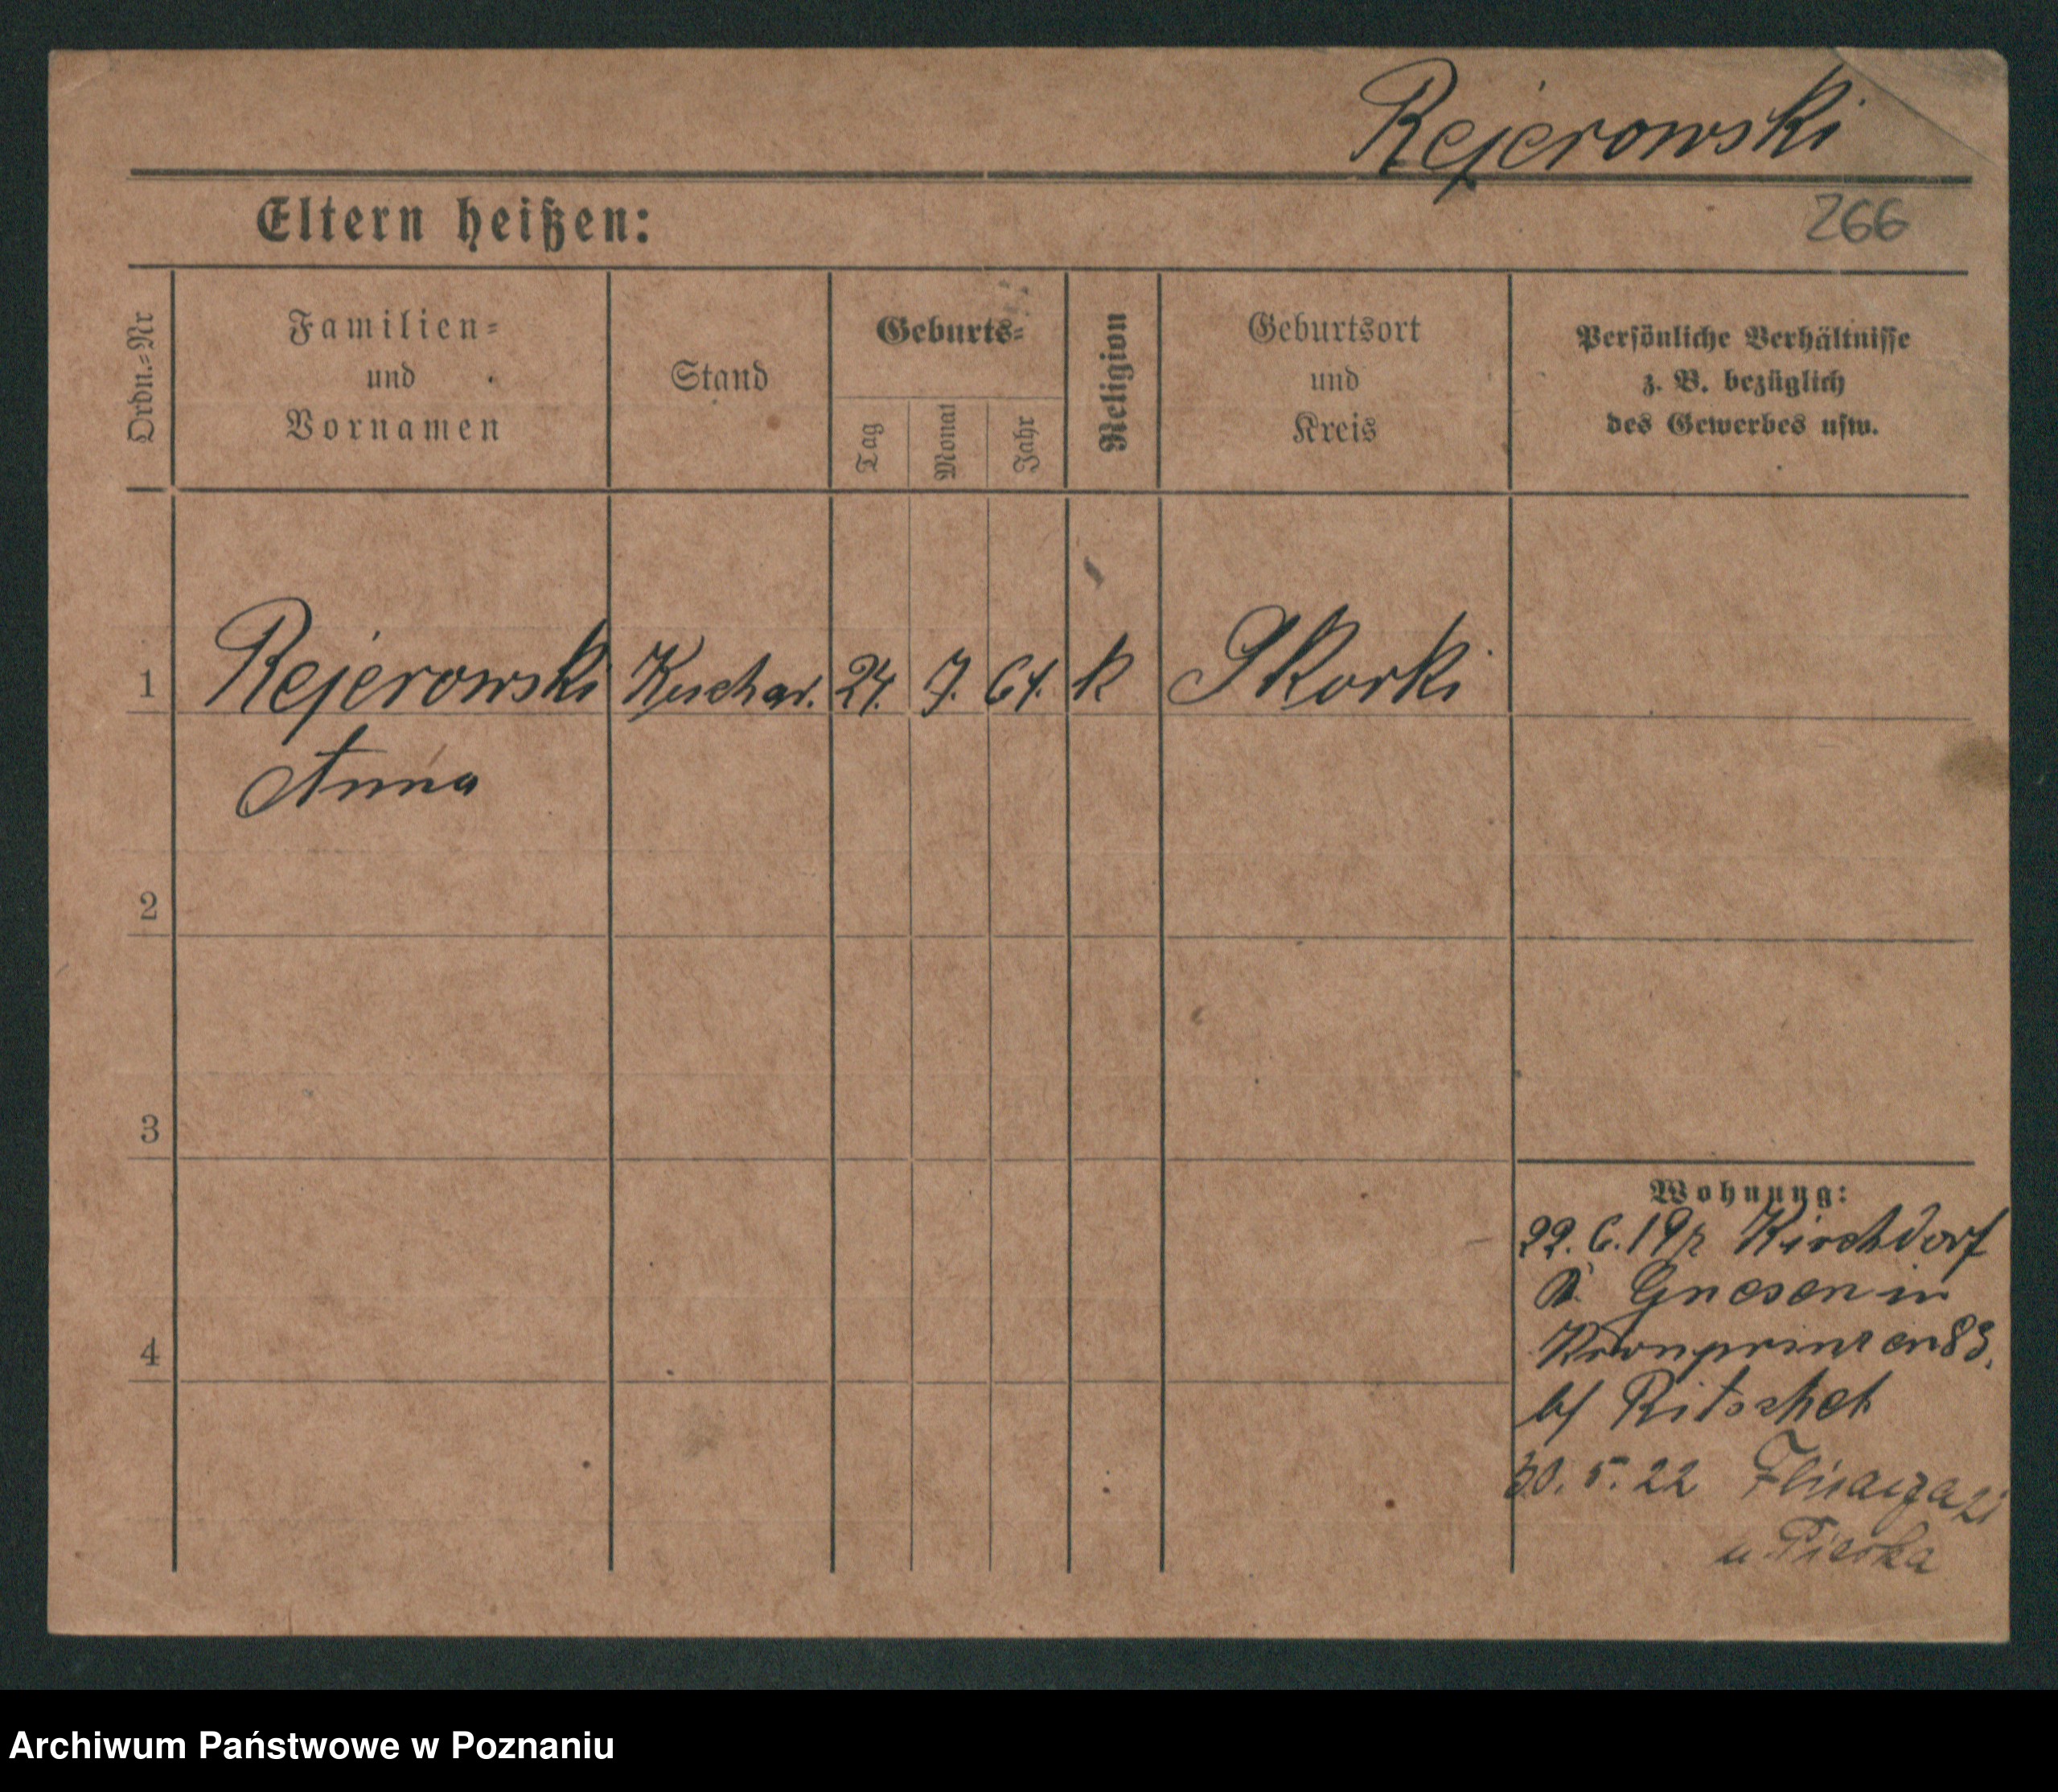 Rejerowski
Eltern heißen:
266
Ordn.=Nr
Familien=
und
Vornamen
Stand
Geburts=
Tag
Monat
Jahr
Religion
Geburtsort
und
Kreis
Persönliche Verhältnisse
z. B. bezüglich
des Gewerbes usw.
1 Rejerowski Kuchar. 24. 7. 64. k Skorki
Anna
2
3
4
Wohnung:
22. 6. 19 Kirchdorf
K. Gnesen in
Kronprinzen 83.
b/ Ritschel
30. 5. 22
u. Pieska
Archiwum Państwowe w Poznaniu